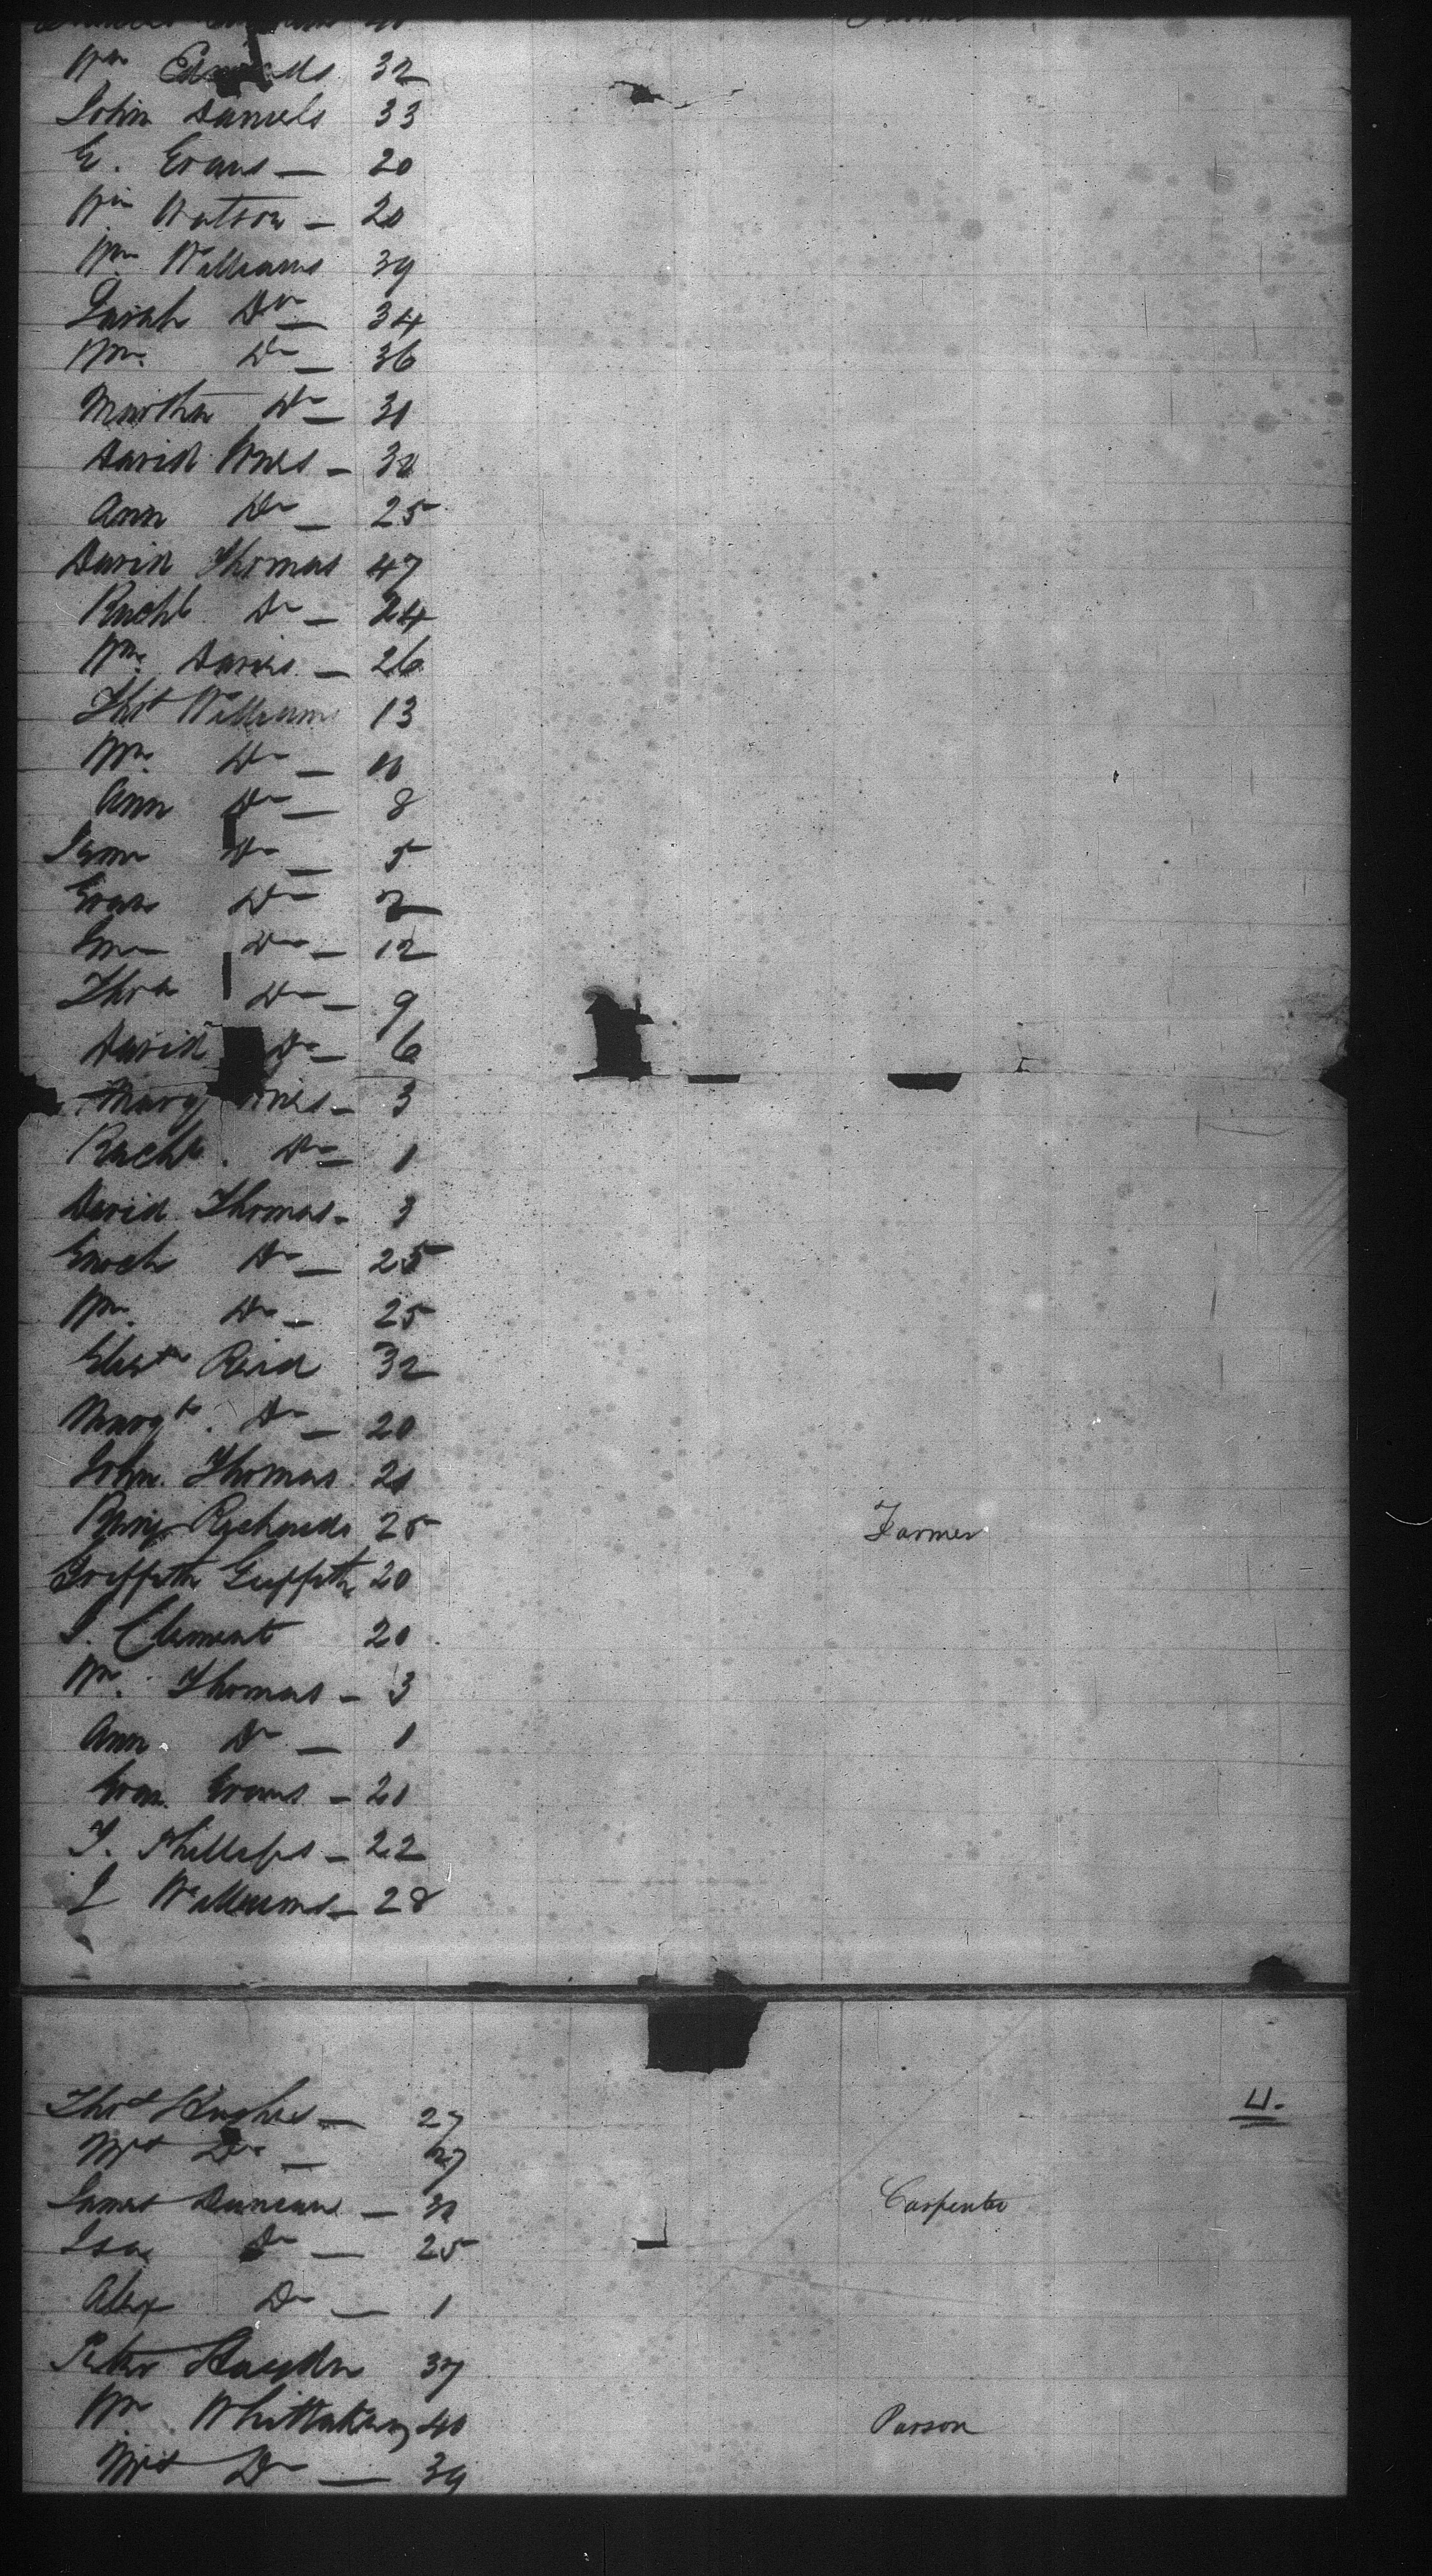 Farmer
Wm Edwards 32
John Daniels 33
E. Evans — 20
Wm Watson — 20
Wm Williams 39
Sarah Do — 34
Wm Do — 36
Martha Do — 31
David Jones — 30
Ann Do — 25
David Thomas 47
Rachl Do — 24
Wm Davies — 26
Thos Williams 13
Wm Do — 10
Ann Do — 8
Do — 5
Evan Do 2
Do — 12
Thos Do — 9
David Do — 6
Mary Jones — 3
Rachl. Do — 1
David Thomas — 3
Enoch Do — 25
Wm. Do — 25
Elizth Reid 32
Margt. Do — 20
John Thomas 21
Benj Richards 25 Farmer
Griffith Griffith 20
Clement 20
Wm. Thomas — 3
Ann Do — 1
Evan Evans — 20
T. Phillips — 22
J Williams — 28
4.
Thos Hughes — 27
Mrs Do — 27
James Duncan — 30 Carpenter
Do — 25
Alex Do — 1
Peter Hayden 37
Wm Whittaker 40 Parson
Mrs Do — 39